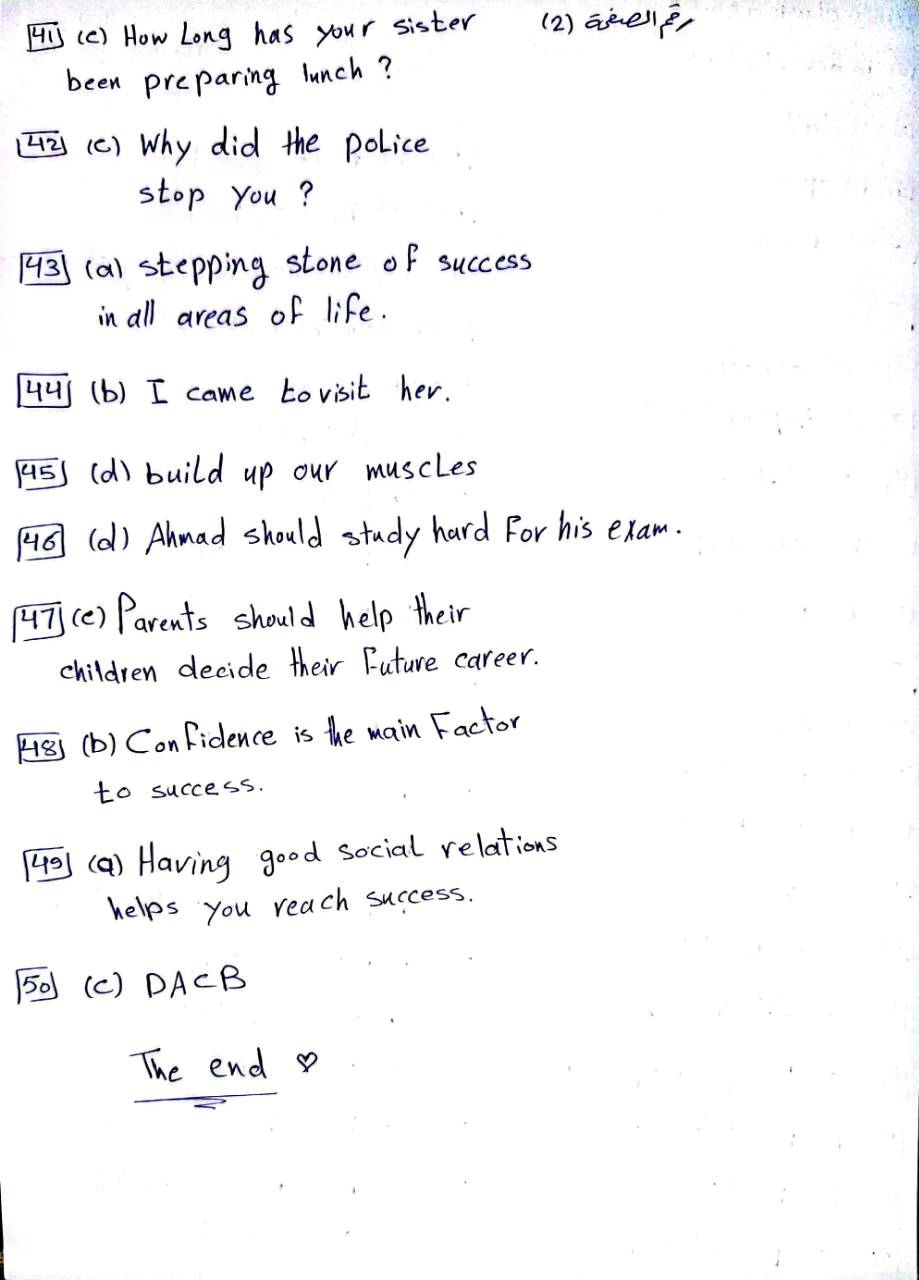 41 (c) How Long has your sister
رقم الصفحة (2)
been preparing lunch ?
42 (c) Why did the police
stop you ?
43 (a) stepping stone of success
in all areas of life.
44 (b) I came to visit her.
45 (d) build up our muscles
46 (d) Ahmad should study hard For his exam.
47 (c) Parents should help their
children decide their Future career.
48 (b) Confidence is the main Factor
to success.
49 (a) Having good social relations
helps you reach success.
50 (c) DACB
The end ♡